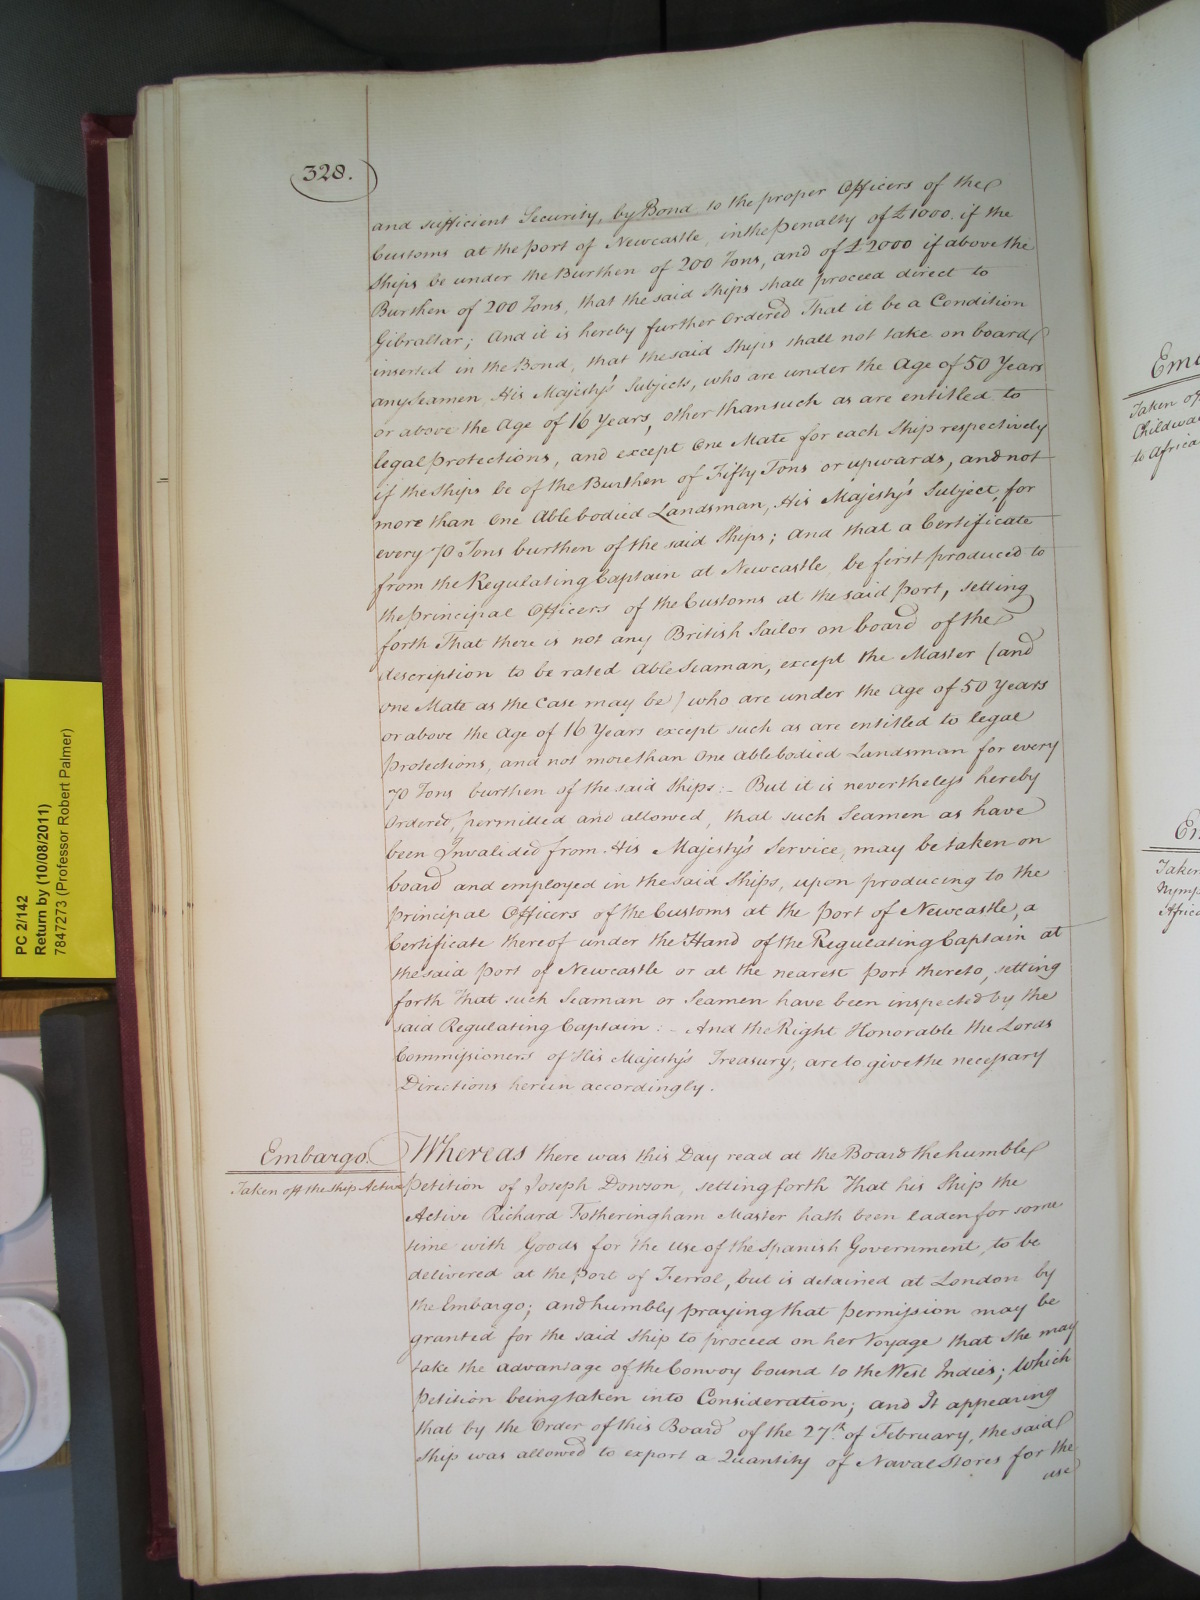 328.
and sufficient Security, by Bond to the proper Officers of the
Customs at the port of Newcastle, in the Penalty of £1000. if the
Ships be under the Burthen of 200 Tons, and of £2000 if above the
Burthen of 200 Tons, that the said Ships shall proceed direct to
Gibraltar; And it is hereby further Ordered That it be a Condition
inserted in the Bond, that the said Ships shall not take on board
any Seamen, His Majesty's Subjects, who are under the Age of 50 Years
or above the Age of 16 Years, other than such as are entitled to
legal Protections, and except One Mate for each Ship respectively
if the Ships be of the Burthen of Fifty Tons or upwards, and not
more than One Ablebodied Landsman, His Majesty's Subject, for
every 70 Tons burthen of the said Ships; And that a Certificate
from the Regulating Captain at Newcastle be first produced to
the Principal Officers of the Customs at the said Port, setting
forth That there is not any British Sailor on board of the
description to be rated Able Seaman, except the Master (and
one Mate as the Case may be) who are under the Age of 50 Years
or above the Age of 16 Years except such as are entitled to legal
Protections, and not more than One Ablebodied Landsman for every
70 Tons burthen of the said Ships:- But it is nevertheless hereby
Ordered, permitted and allowed, that such Seamen as have
been Invalided from His Majesty's Service, may be taken on
board and employed in the said Ships, upon producing to the
Principal Officers of the Customs at the Port of Newcastle, a
Certificate thereof under the Hand of the Regulating Captain at
the said Port of Newcastle or at the nearest Port thereto, setting
forth That such Seaman or Seamen have been inspected by the
said Regulating Captain:- And the Right Honorable the Lords
Commissioners of His Majesty's Treasury, are to give the necessary
Directions herein accordingly.
Embargo.
Taken off the Ship Active
Whereas there was this Day read at the Board the humble
Petition of Joseph Dowson, setting forth That his Ship the
Active Richard Fotheringham Master hath been laden for some
time with Goods for the use of the Spanish Government, to be
delivered at the Port of Ferrol, but is detained at London by
the Embargo; and humbly praying that permission may be
granted for the said Ship to proceed on her Voyage that she may
take the advantage of the Convoy bound to the West Indies; Which
Petition being taken into Consideration; and It appearing
that by the Order of this Board of the 27th. of February, the said
Ship was allowed to export a Quantity of Naval Stores for the
use
PC 2/142
Return by (10/08/2011)
7847273 (Professor Robert Palmer)
Taken
to Africa
Taken